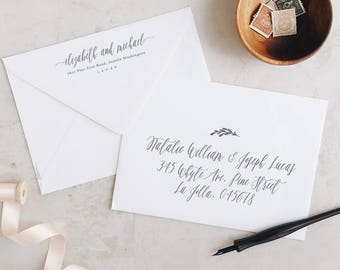 elizabeth and michael
1825 Pine Tree Road, Seattle Washington
Natalie William & Joseph Lucas
345 Whyte Ave, Pine Street
La Jolla, 045678